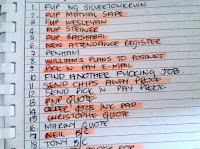 1. FUP NG SILVERTON KEVIN
2. FUP MUTUAL SAFE
3. FUP WESLEYAN
4. FUP STEINER
5. FUP BATSHABAI
6. NEW ATTENDANCE REGISTER
7. PENHAM
8. WILLIAM'S PLANS TO POSTNET
9. PICK N PAY E-MAIL
10 FIND ANOTHER FUCKING JOB
11 SEND CHIPS AWAY PROOF
12 SEND PICK N PAY PROOF
13. PNP QUOTE
14 ORDER 4928 INK PAD
15 CHRISTOPHE QUOTE
16 MARINY QUOTE
17 NEIL B/C
18 TONY B/C